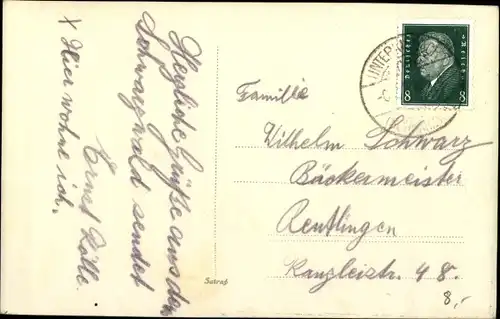 Herzliche Grüße aus dem
Schwarzwald sendet
Ernst Rölle.
X Hier wohne ich.
Satrap
Deutsches Reich
8 8
UNTER
Familie
Wilhelm Schwarz
Bäckermeister
Reutlingen
Kanzleistr. 48.
8,-